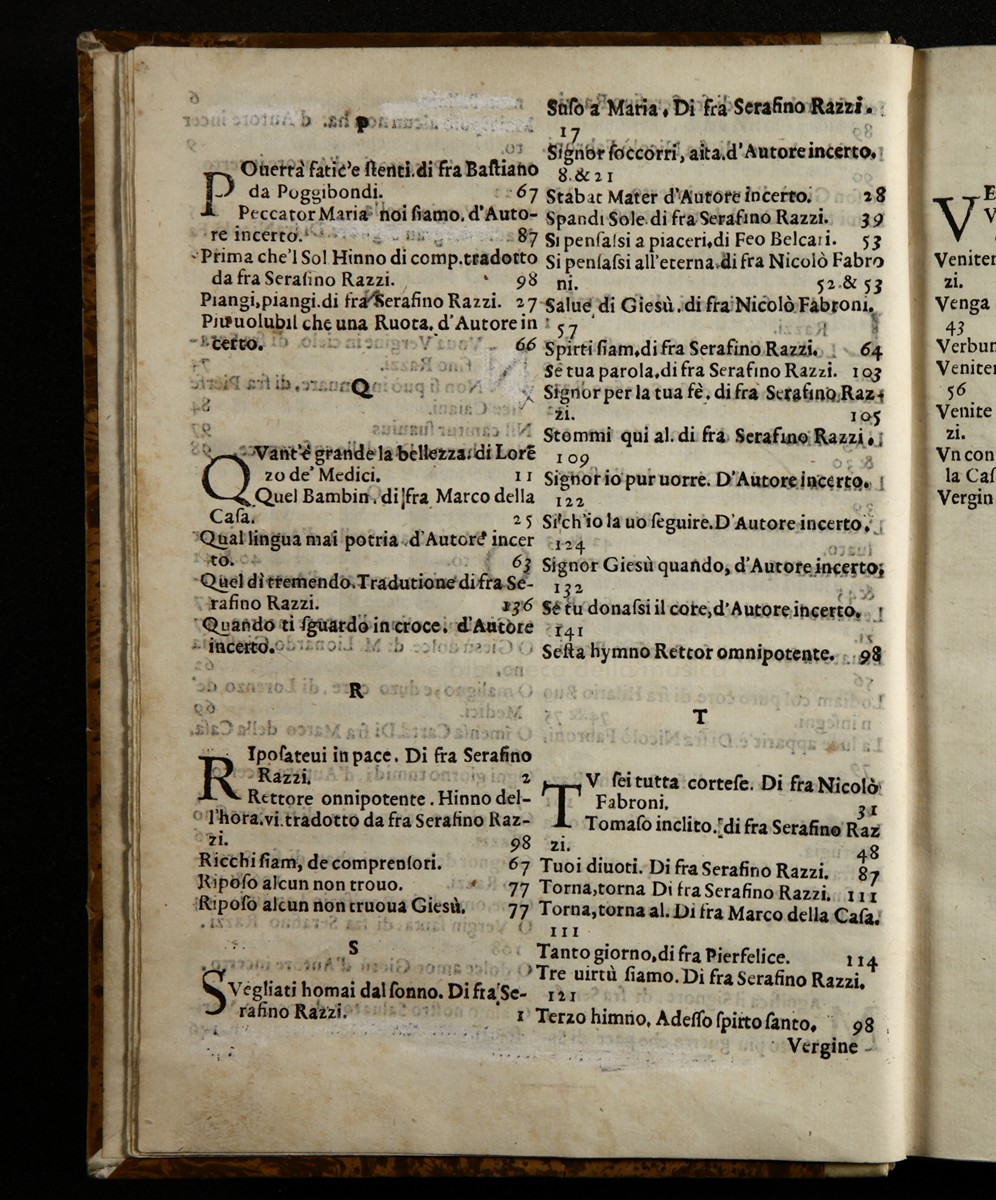 P
POuertà fatic'e ſtenti.di fra Baſtiano
da Poggibondi. 67
Peccator Maria noi ſiamo. d'Auto-
re incerto. 87
Prima che'l Sol Hinno di comp.tradotto
da fra Serafino Razzi. 98
Piangi,piangi.di fra Serafino Razzi. 27
Piu uolubil che una Ruota. d'Autore in
certo. 66
Q
QVant'è grande la bellezza. di Lorē
zo de' Medici. 11
Quel Bambin. di fra Marco della
Caſa. 25
Qual lingua mai potria. d'Autore incer
to. 63
Quel dì tremendo. Tradutione di fra Se-
rafino Razzi. 136
Quando ti ſguardo in croce. d'Autore
incerto.
R
RIpoſateui in pace. Di fra Serafino
Razzi. 2
Rettore onnipotente. Hinno del-
l'hora.vi.tradotto da fra Serafino Raz-
zi. 98
Ricchi ſiam, de comprenſori. 67
Ripoſo alcun non trouo. 77
Ripoſo alcun non truoua Giesù. 77
S
SVegliati homai dal ſonno. Di fra Se-
rafino Razzi. 1
Suſo a Maria. Di fra Serafino Razzi.
17
Signor ſoccorri, aita.d'Autore incerto.
8.&21
Stabat Mater d'Autore incerto. 28
Spandi Sole. di fra Serafino Razzi. 39
Si penſaſsi a piaceri,di Feo Belcari. 53
Si penſaſsi all'eterna.di fra Nicolò Fabro
ni. 52.& 53
Salue di Giesù. di fra Nicolò Fabroni.
57
Spirti ſiam,di fra Serafino Razzi. 64
Se tua parola,di fra Serafino Razzi. 103
Signor per la tua fè. di fra Serafino Raz-
zi. 105
Stommi qui al. di fra Serafino Razzi.
109
Signor io pur uorre. D'Autore incerto.
122
Si ch'io la uo ſeguire.D'Autore incerto.
124
Signor Giesù quando, d'Autore incerto.
132
Se tu donaſsi il core,d'Autore incerto.
141
Seſta hymno Rettor omnipotente. 98
T
TV ſei tutta corteſe. Di fra Nicolò
Fabroni. 31
Tomaſo inclito. di fra Serafino Raz
zi. 48
Tuoi diuoti. Di fra Serafino Razzi. 87
Torna,torna Di fra Serafino Razzi. 111
Torna,torna al. Di fra Marco della Caſa.
111
Tanto giorno,di fra Pierfelice. 114
Tre uirtù ſiamo. Di fra Serafino Razzi.
121
Terzo himno, Adeſſo ſpirto ſanto. 98
Vergine
VE
V
Veniten
zi.
Venga
43
Verbum
Veniten
56
Venite
zi.
Vn con
la Caſ
Vergin